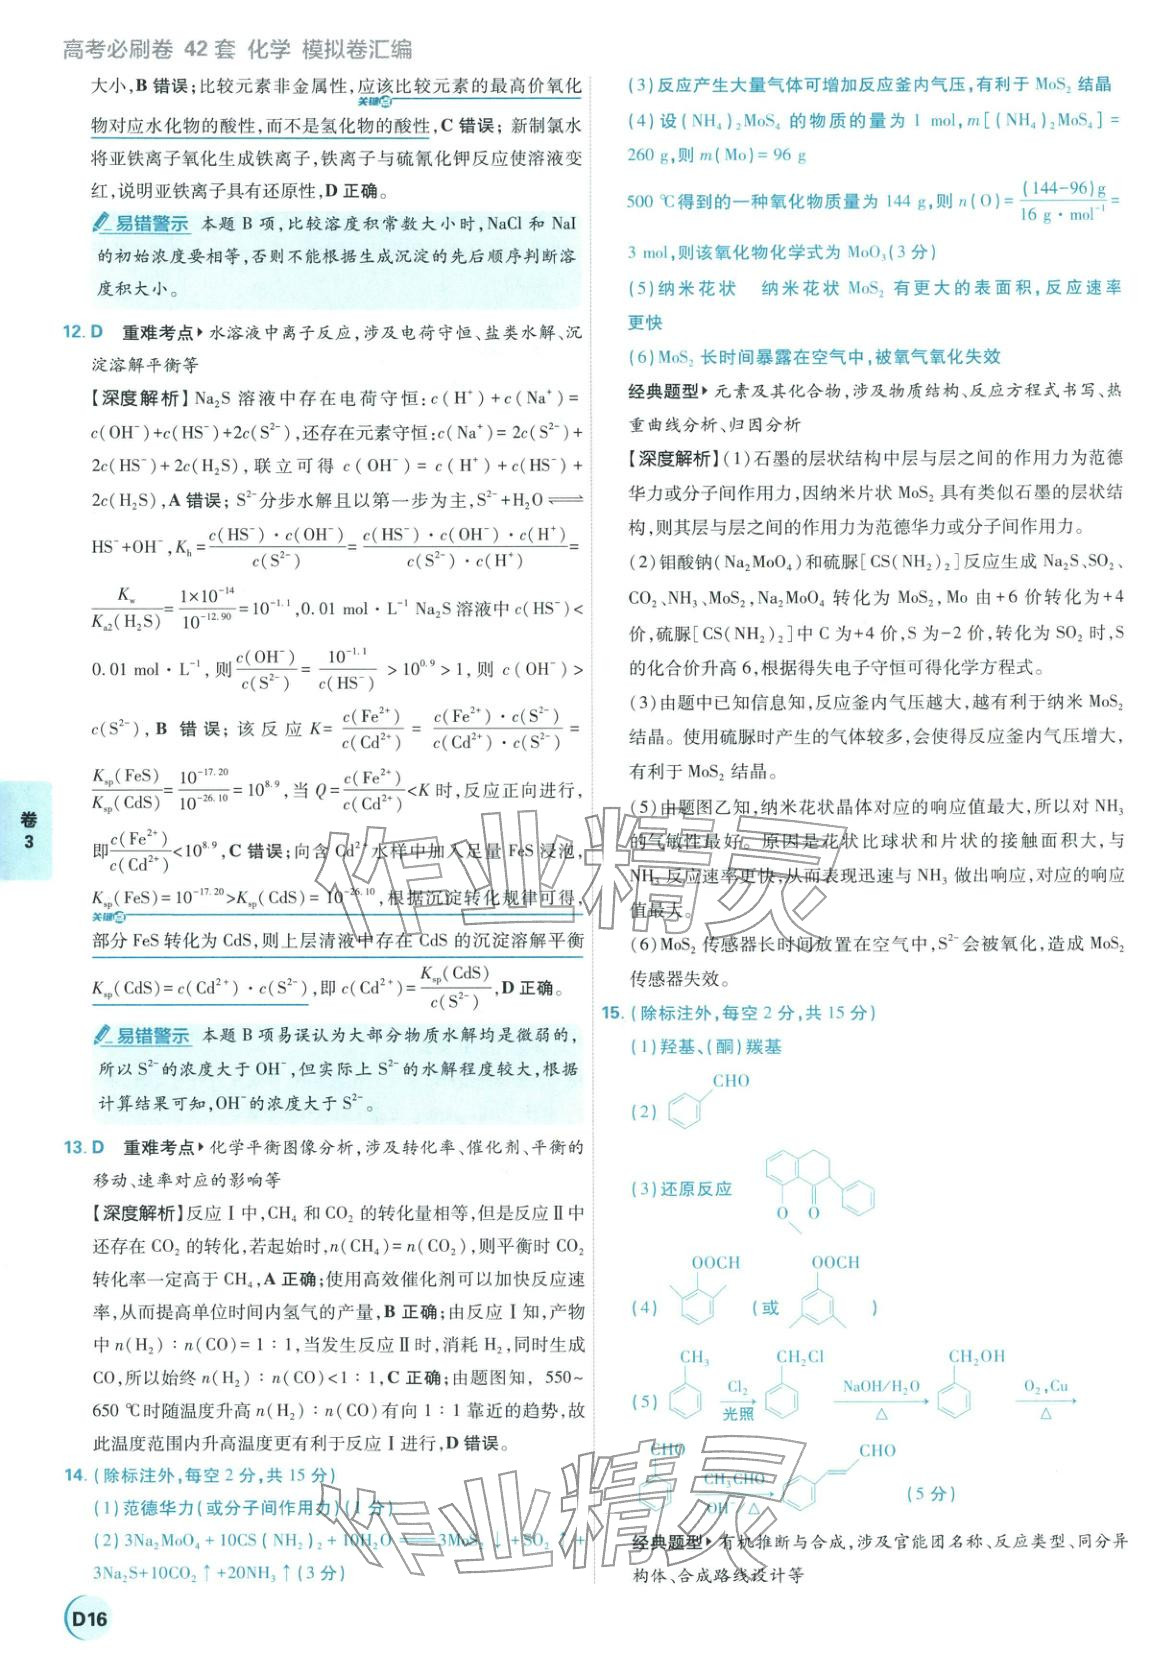 高考必刷卷 42套 化学 模拟卷汇编
大小,B 错误;比较元素非金属性,应该比较元素的最高价氧化
关键点
物对应水化物的酸性,而不是氢化物的酸性,C 错误; 新制氯水
将亚铁离子氧化生成铁离子,铁离子与硫氰化钾反应使溶液变
红,说明亚铁离子具有还原性,D 正确。
易错警示 本题 B 项,比较溶度积常数大小时,NaCl 和 NaI
的初始浓度要相等,否则不能根据生成沉淀的先后顺序判断溶
度积大小。
12. D 重难考点▸ 水溶液中离子反应,涉及电荷守恒、盐类水解、沉
淀溶解平衡等
【深度解析】Na₂S 溶液中存在电荷守恒:c(H⁺)+c(Na⁺)=
c(OH⁻)+c(HS⁻)+2c(S²⁻),还存在元素守恒:c(Na⁺)= 2c(S²⁻)+
2c(HS⁻)+2c(H₂S),联立可得 c(OH⁻)= c(H⁺)+c(HS⁻)+
2c(H₂S),A 错误; S²⁻分步水解且以第一步为主,S²⁻+H₂O⇌
HS⁻+OH⁻,Kₕ=c(HS⁻)·c(OH⁻)/c(S²⁻)=c(HS⁻)·c(OH⁻)·c(H⁺)/c(S²⁻)·c(H⁺)=
K_w/K_a2(H₂S)=1×10⁻¹⁴/10⁻¹²·⁹⁰=10⁻¹·¹,0.01 mol·L⁻¹ Na₂S 溶液中 c(HS⁻)<
0.01 mol·L⁻¹,则c(OH⁻)/c(S²⁻)=10⁻¹·¹/c(HS⁻)>10⁰·⁹>1,则 c(OH⁻)>
c(S²⁻),B 错误;该反应 K=c(Fe²⁺)/c(Cd²⁺)=c(Fe²⁺)·c(S²⁻)/c(Cd²⁺)·c(S²⁻)=
K_sp(FeS)/K_sp(CdS)=10⁻¹⁷·²⁰/10⁻²⁶·¹⁰=10⁸·⁹,当 Q=c(Fe²⁺)/c(Cd²⁺)<K 时,反应正向进行,
即c(Fe²⁺)/c(Cd²⁺)<10⁸·⁹,C 错误;向含 Cd²⁺水样中加入足量 FeS 浸泡,
K_sp(FeS)=10⁻¹⁷·²⁰>K_sp(CdS)=10⁻²⁶·¹⁰,根据沉淀转化规律可得,
关键点
部分 FeS 转化为 CdS,则上层清液中存在 CdS 的沉淀溶解平衡
K_sp(CdS)=c(Cd²⁺)·c(S²⁻),即 c(Cd²⁺)=K_sp(CdS)/c(S²⁻),D 正确。
易错警示 本题 B 项易误认为大部分物质水解均是微弱的,
所以 S²⁻的浓度大于 OH⁻,但实际上 S²⁻的水解程度较大,根据
计算结果可知,OH⁻的浓度大于 S²⁻。
13. D 重难考点▸ 化学平衡图像分析,涉及转化率、催化剂、平衡的
移动、速率对应的影响等
【深度解析】反应Ⅰ中,CH₄ 和 CO₂ 的转化量相等,但是反应Ⅱ中
还存在 CO₂ 的转化,若起始时,n(CH₄)=n(CO₂),则平衡时 CO₂
转化率一定高于 CH₄,A 正确;使用高效催化剂可以加快反应速
率,从而提高单位时间内氢气的产量,B 正确;由反应Ⅰ知,产物
中 n(H₂)∶n(CO)=1∶1,当发生反应Ⅱ时,消耗 H₂,同时生成
CO,所以始终 n(H₂)∶n(CO)<1∶1,C 正确;由题图知, 550~
650 ℃时随温度升高 n(H₂)∶n(CO)有向 1∶1 靠近的趋势,故
此温度范围内升高温度更有利于反应Ⅰ进行,D 错误。
14. (除标注外,每空 2 分,共 15 分)
(1)范德华力(或分子间作用力)(1 分)
(2)3Na₂MoO₄+10CS(NH₂)₂+10H₂O══3MoS₂↓+SO₂↑+
3Na₂S+10CO₂↑+20NH₃↑(3 分)
(3)反应产生大量气体可增加反应釜内气压,有利于 MoS₂ 结晶
(4)设(NH₄)₂MoS₄ 的物质的量为 1 mol,m[(NH₄)₂MoS₄]=
260 g,则 m(Mo)=96 g
500 ℃得到的一种氧化物质量为 144 g,则 n(O)=(144-96)g/16 g·mol⁻¹=
3 mol,则该氧化物化学式为 MoO₃(3 分)
(5)纳米花状 纳米花状 MoS₂ 有更大的表面积,反应速率
更快
(6)MoS₂ 长时间暴露在空气中,被氧气氧化失效
经典题型▸ 元素及其化合物,涉及物质结构、反应方程式书写、热
重曲线分析、归因分析
【深度解析】(1)石墨的层状结构中层与层之间的作用力为范德
华力或分子间作用力,因纳米片状 MoS₂ 具有类似石墨的层状结
构,则其层与层之间的作用力为范德华力或分子间作用力。
(2)钼酸钠(Na₂MoO₄)和硫脲[CS(NH₂)₂]反应生成 Na₂S、SO₂、
CO₂、NH₃、MoS₂,Na₂MoO₄ 转化为 MoS₂,Mo 由+6 价转化为+4
价,硫脲[CS(NH₂)₂]中 C 为+4 价,S 为-2 价,转化为 SO₂ 时,S
的化合价升高 6,根据得失电子守恒可得化学方程式。
(3)由题中已知信息知,反应釜内气压越大,越有利于纳米 MoS₂
结晶。使用硫脲时产生的气体较多,会使得反应釜内气压增大,
有利于 MoS₂ 结晶。
(5)由题图乙知,纳米花状晶体对应的响应值最大,所以对 NH₃
的气敏性最好。原因是花状比球状和片状的接触面积大,与
NH₃ 反应速率更快,从而表现迅速与 NH₃ 做出响应,对应的响应
值最大。
(6)MoS₂ 传感器长时间放置在空气中,S²⁻会被氧化,造成 MoS₂
传感器失效。
15. (除标注外,每空 2 分,共 15 分)
(1)羟基、(酮)羰基
CHO
(2)
(3)还原反应
O O
OOCH OOCH
(4) (或 )
CH₃ CH₂Cl CH₂OH
(5) Cl₂ 光照 NaOH/H₂O △ O₂,Cu △
CHO CH₃CHO OH⁻/△ CHO (5 分)
经典题型▸ 有机推断与合成,涉及官能团名称、反应类型、同分异
构体、合成路线设计等
卷3
D16
作业精灵
作业精灵